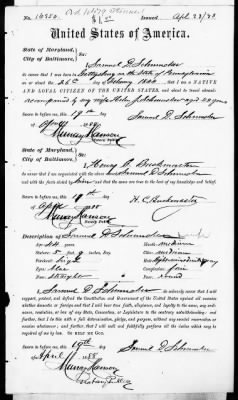 No. 16350
Issued Apl. 23/88
United States of America.
State of Maryland,
City of Baltimore,
I, Samuel D. Schmucker
do swear that I was born in Gettysburg in the State of Pennsylvania
on the 26th day of February 1844, that I am a NATIVE
AND LOYAL CITIZEN OF THE UNITED STATES, and about to travel abroad
accompanied by my wife Helen J. Schmucker aged 29 years
Sworn to before me this 19th day
of April 1888
Samuel D. Schmucker
Murray Hanson
Notary Public
State of Maryland,
City of Baltimore,
I, Henry C.
do swear that I am acquainted with the above named Samuel D. Schmucker
and with the facts stated by him and that the same are true to the best of my knowledge and belief.
Sworn to before me this 19th day
of April 1888
Murray Hanson
Notary Public
Description of Samuel D. Schmucker
Age: 44
Mouth: medium
Stature: 5 Feet 9 Inches, Eng.
Chin: medium
Forehead: high
Hair:
Eyes: blue
Complexion: fair
Nose: straight
Face: round
I, Samuel D. Schmucker do solemnly swear that I will
support, protect, and defend the Constitution and Government of the United States against all enemies
whether domestic or foreign; and that I will bear true faith, allegiance, and loyalty to the same, any ordi-
nance, resolution, or law of any State, Convention, or Legislature to the contrary notwithstanding; and
further, that I do this with a full determination, pledge, and purpose, without any mental reservation or
evasion whatsoever; and further, that I will well and faithfully perform all the duties which may be
required of me by law. SO HELP ME GOD.
Sworn to before me this 19th day
of April 1888
Samuel D. Schmucker
Murray Hanson
Notary Public